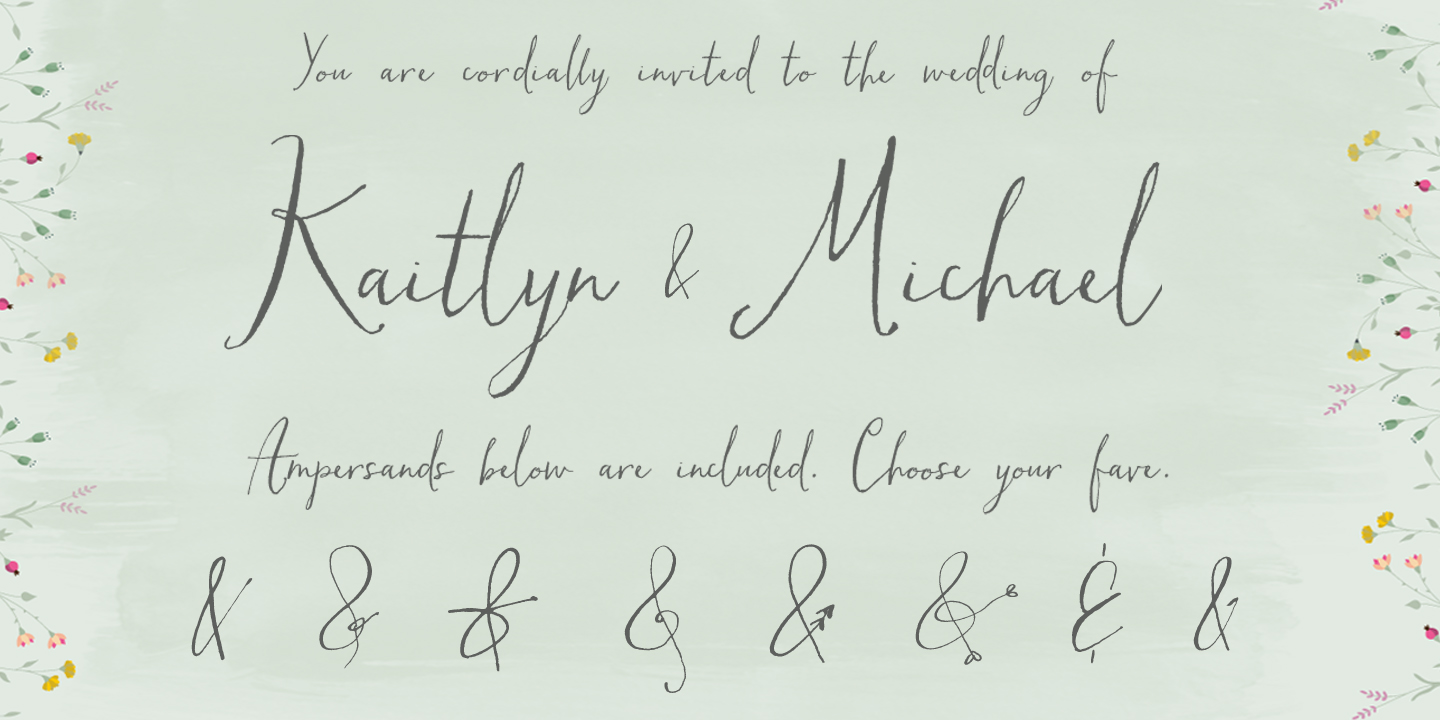 You are cordially invited to the wedding of
Kaitlyn & Michael
Ampersands below are included. Choose your fave.
& & & & & & & &